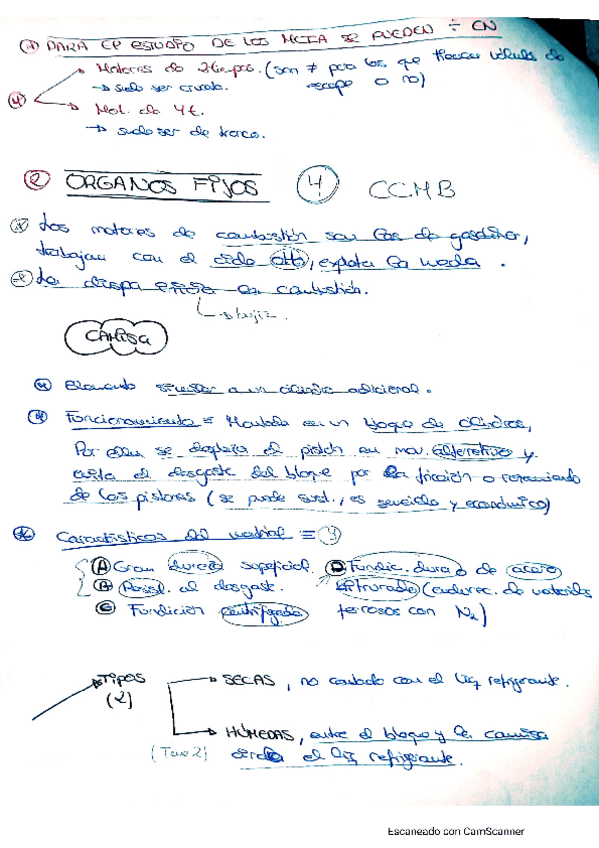 PARA EL ESTUDIO DE LOS MCIA SE PUEDEN ÷ EN
Motores de 2tiempos. (son ≠ para los que llevan válvula de
→ suele ser cruceta. escape o no)
→ Mot. de 4t.
→ suele ser de tronco.
2 ORGANOS FIJOS 4 CCMB
Los motores de combustión son los de gasolina,
trabajan con el ciclo otto, explota la mezcla.
La chispa inicia la combustión.
→ bujía.
CAMISA
Elemento similar a un cilindro adicional.
Funcionamiento = Montada en un bloque de cilindros,
Por ellas se desplaza el pistón en mov. alternativo y
evita el desgaste del bloque por la fricción o rozamiento
de los pistones (se puede sust., es sencilla y económico)
Características del material = 4
A Gran dureza superficial. D Fundic. dura o de acero
B Resist. al desgaste. nitrurado (endurec. de materiales
C Fundición centrifugada ferrosos con N2)
TIPOS → SECAS, no contacto con el líq refrigerante.
(2)
→ HÚMEDAS, entre el bloque y la camisa
(Tema 2) circula el líq refrigerante.
Escaneado con CamScanner